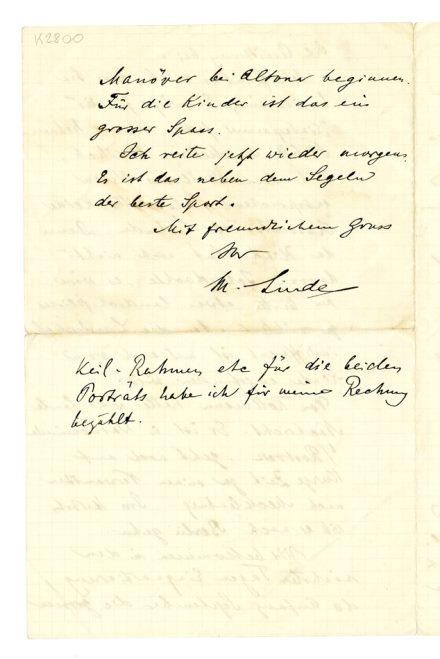 K2800
Manöver bei Altona beginnen.
Für die Kinder ist das ein
grosser Spass.
Ich reite jetzt wieder morgens.
Es ist das neben dem Segeln
der beste Sport.
Mit freundlichem Gruss
Ihr
M. Linde
Keil-Rahmen etc für die beiden
Porträts habe ich für meine Rechnung
bezahlt.